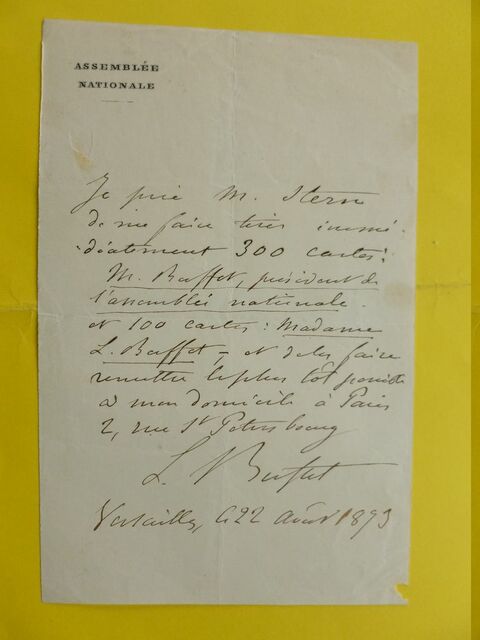 ASSEMBLÉE
NATIONALE
Je prie M. Stern
de me faire tirer immé
diatement 300 cartes :
M. Buffet, président de
l'assemblée nationale
et 100 cartes : Madame
L. Buffet, et de les faire
remettre le plus tôt possible
à mon domicile à Paris
2, rue St Petersbourg
L. Buffet
Versailles, le 22 août 1873